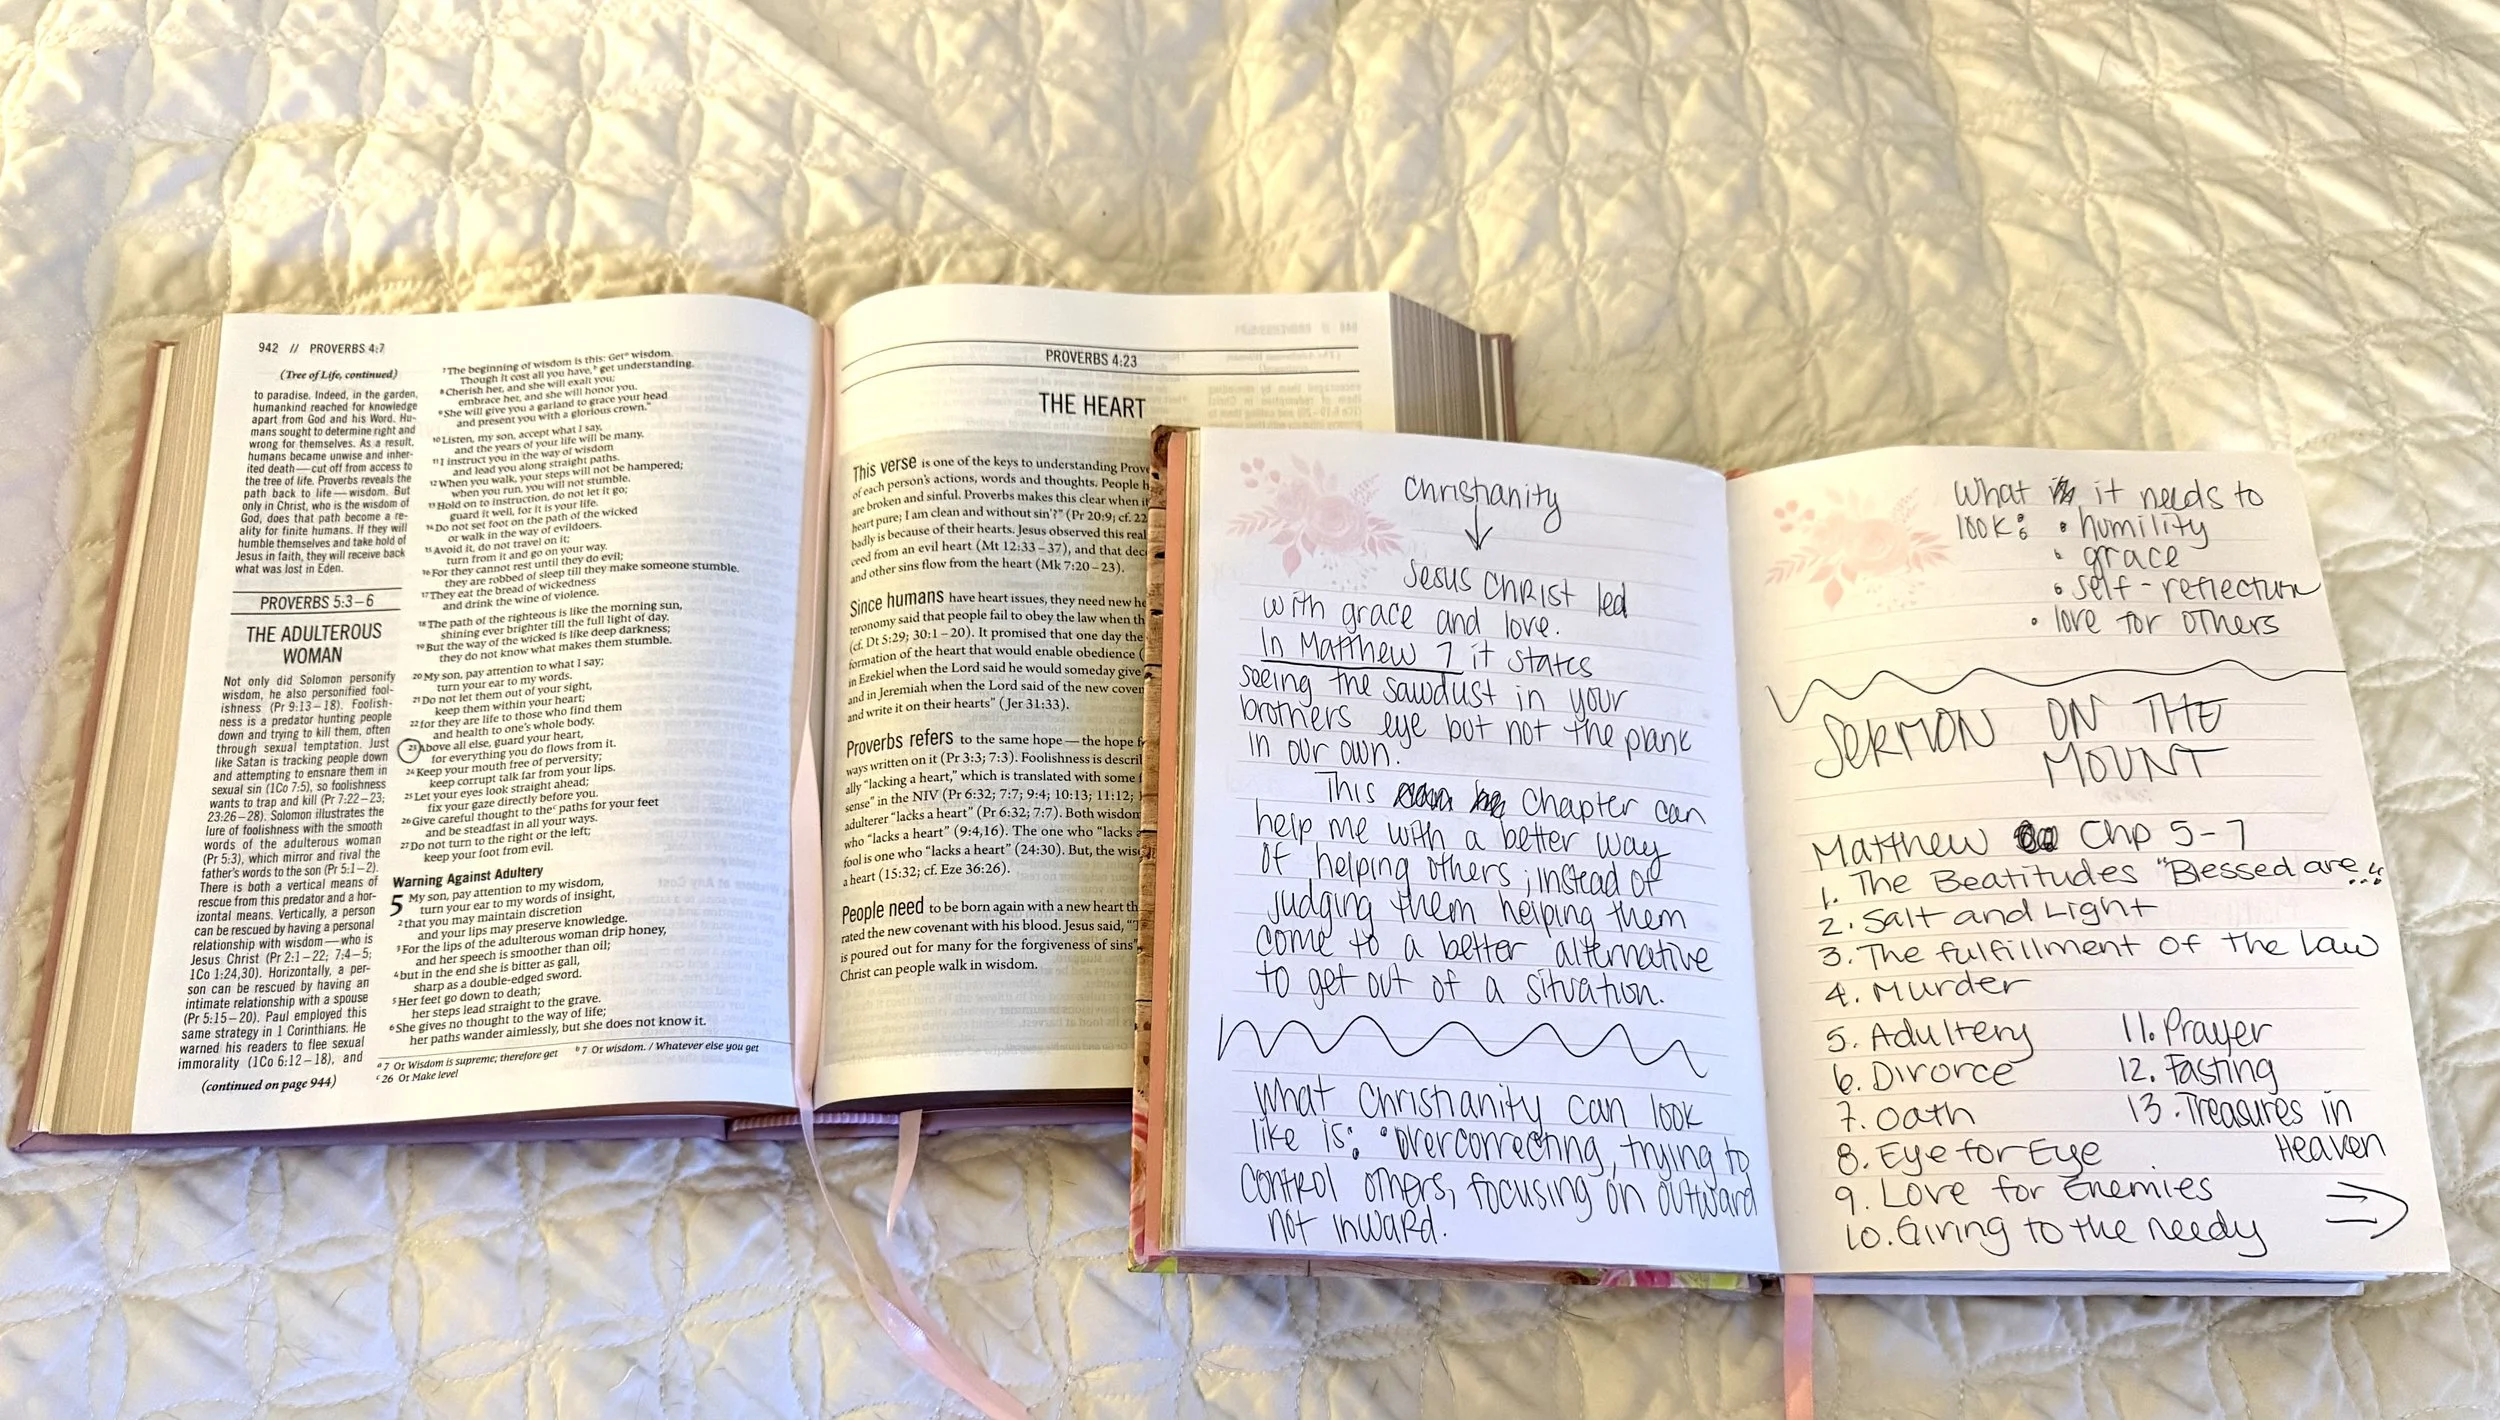 942 // PROVERBS 4:7
(Tree of Life, continued)
to paradise. Indeed, in the garden,
humankind reached for knowledge
apart from God and his Word. Hu-
mans sought to determine right and
wrong for themselves. As a result,
humans became unwise and inher-
ited death—cut off from access to
the tree of life. Proverbs reveals the
path back to life—wisdom. But
only in Christ, who is the wisdom of
God, does that path become a re-
ality for finite humans. If they will
humble themselves and take hold of
Jesus in faith, they will receive back
what was lost in Eden.
PROVERBS 5:3–6
THE ADULTEROUS
WOMAN
Not only did Solomon personify
wisdom, he also personified fool-
ishness (Pr 9:13–18). Foolish-
ness is a predator hunting people
down and trying to kill them, often
through sexual temptation. Just
like Satan is tracking people down
and attempting to ensnare them in
sexual sin (1Co 7:5), so foolishness
wants to trap and kill (Pr 7:22–23;
23:26–28). Solomon illustrates the
lure of foolishness with the smooth
words of the adulterous woman
(Pr 5:3), which mirror and rival the
father's words to the son (Pr 5:1–2).
There is both a vertical means of
rescue from this predator and a hor-
izontal means. Vertically, a person
can be rescued by having a personal
relationship with wisdom—who is
Jesus Christ (Pr 2:1–22; 7:4–5;
1Co 1:24,30). Horizontally, a per-
son can be rescued by having an
intimate relationship with a spouse
(Pr 5:15–20). Paul employed this
same strategy in 1 Corinthians. He
warned his readers to flee sexual
immorality (1Co 6:12–18), and
(continued on page 944)
7 The beginning of wisdom is this: Get a wisdom.
Though it cost all you have, b get understanding.
8 Cherish her, and she will exalt you;
embrace her, and she will honor you.
9 She will give you a garland to grace your head
and present you with a glorious crown."
10 Listen, my son, accept what I say,
and the years of your life will be many.
11 I instruct you in the way of wisdom
and lead you along straight paths.
12 When you walk, your steps will not be hampered;
when you run, you will not stumble.
13 Hold on to instruction, do not let it go;
guard it well, for it is your life.
14 Do not set foot on the path of the wicked
or walk in the way of evildoers.
15 Avoid it, do not travel on it;
turn from it and go on your way.
16 For they cannot rest until they do evil;
they are robbed of sleep till they make someone stumble.
17 They eat the bread of wickedness
and drink the wine of violence.
18 The path of the righteous is like the morning sun,
shining ever brighter till the full light of day.
19 But the way of the wicked is like deep darkness;
they do not know what makes them stumble.
20 My son, pay attention to what I say;
turn your ear to my words.
21 Do not let them out of your sight,
keep them within your heart;
22 for they are life to those who find them
and health to one's whole body.
23 Above all else, guard your heart,
for everything you do flows from it.
24 Keep your mouth free of perversity;
keep corrupt talk far from your lips.
25 Let your eyes look straight ahead;
fix your gaze directly before you.
26 Give careful thought to the c paths for your feet
and be steadfast in all your ways.
27 Do not turn to the right or the left;
keep your foot from evil.
Warning Against Adultery
5 My son, pay attention to my wisdom,
turn your ear to my words of insight,
2 that you may maintain discretion
and your lips may preserve knowledge.
3 For the lips of the adulterous woman drip honey,
and her speech is smoother than oil;
4 but in the end she is bitter as gall,
sharp as a double-edged sword.
5 Her feet go down to death;
her steps lead straight to the grave.
6 She gives no thought to the way of life;
her paths wander aimlessly, but she does not know it.
a 7 Or Wisdom is supreme; therefore get b 7 Or wisdom. / Whatever else you get
c 26 Or Make level
PROVERBS 4:23
THE HEART
This verse is one of the keys to understanding Prove
of each person's actions, words and thoughts. People h
are broken and sinful. Proverbs makes this clear when it
heart pure; I am clean and without sin'?" (Pr 20:9; cf. 22
badly is because of their hearts. Jesus observed this real
ceed from an evil heart (Mt 12:33–37), and that dec
and other sins flow from the heart (Mk 7:20–23).
Since humans have heart issues, they need new he
teronomy said that people fail to obey the law when th
(cf. Dt 5:29; 30:1–20). It promised that one day the
formation of the heart that would enable obedience (
in Ezekiel when the Lord said he would someday give
and in Jeremiah when the Lord said of the new coven
and write it on their hearts" (Jer 31:33).
Proverbs refers to the same hope—the hope f
ways written on it (Pr 3:3; 7:3). Foolishness is descri
ally "lacking a heart," which is translated with some f
sense" in the NIV (Pr 6:32; 7:7; 9:4; 10:13; 11:12; 1
adulterer "lacks a heart" (Pr 6:32; 7:7). Both wisdom
who "lacks a heart" (9:4,16). The one who "lacks a
fool is one who "lacks a heart" (24:30). But, the wise
a heart (15:32; cf. Eze 36:26).
People need to be born again with a new heart th
rated the new covenant with his blood. Jesus said, "T
is poured out for many for the forgiveness of sins"
Christ can people walk in wisdom.
Christianity
↓
Jesus Christ led
with grace and love.
In Matthew 7 it states
seeing the sawdust in your
brothers eye but not the plank
in our own.
This Chapter can
help me with a better way
of helping others; instead of
judging them helping them
come to a better alternative
to get out of a situation.
What Christianity can look
like is: • overcorrecting, trying to
control others, focusing on outward
not inward.
What it needs to
look: • humility
• grace
• self-reflection
• love for others
SERMON ON THE
MOUNT
Matthew Chp 5-7
1. The Beatitudes "Blessed are..."
2. Salt and Light
3. The fulfillment of the Law
4. Murder
5. Adultery 11. Prayer
6. Divorce 12. Fasting
7. Oath 13. Treasures in
Heaven
8. Eye for Eye
9. Love for Enemies
10. Giving to the needy